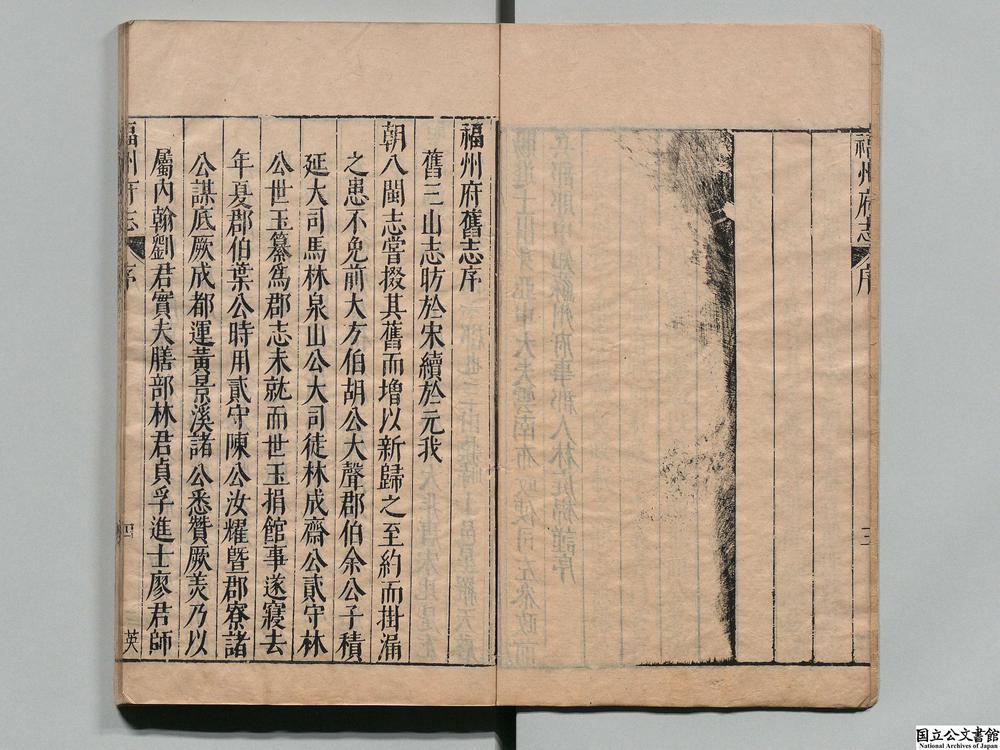 福州府志 序
三
福州府舊志序
舊三山志昉於宋續於元我
朝八閩志嘗掇其舊而增以新歸之至約而掛漏
之患不免前大方伯胡公大聲郡伯余公子積
延大司馬林泉山公大司徒林成齋公貳守林
公世玉纂為郡志未就而世玉捐館事遂寢去
年夏郡伯葉公時用貳守陳公汝耀曁郡寮諸
公謀底厥成都運黃景溪諸公悉贊厥美乃以
屬內翰劉君實夫膳部林君貞孚進士廖君師
福州府志 序
四
英
国立公文書館
National Archives of Japan